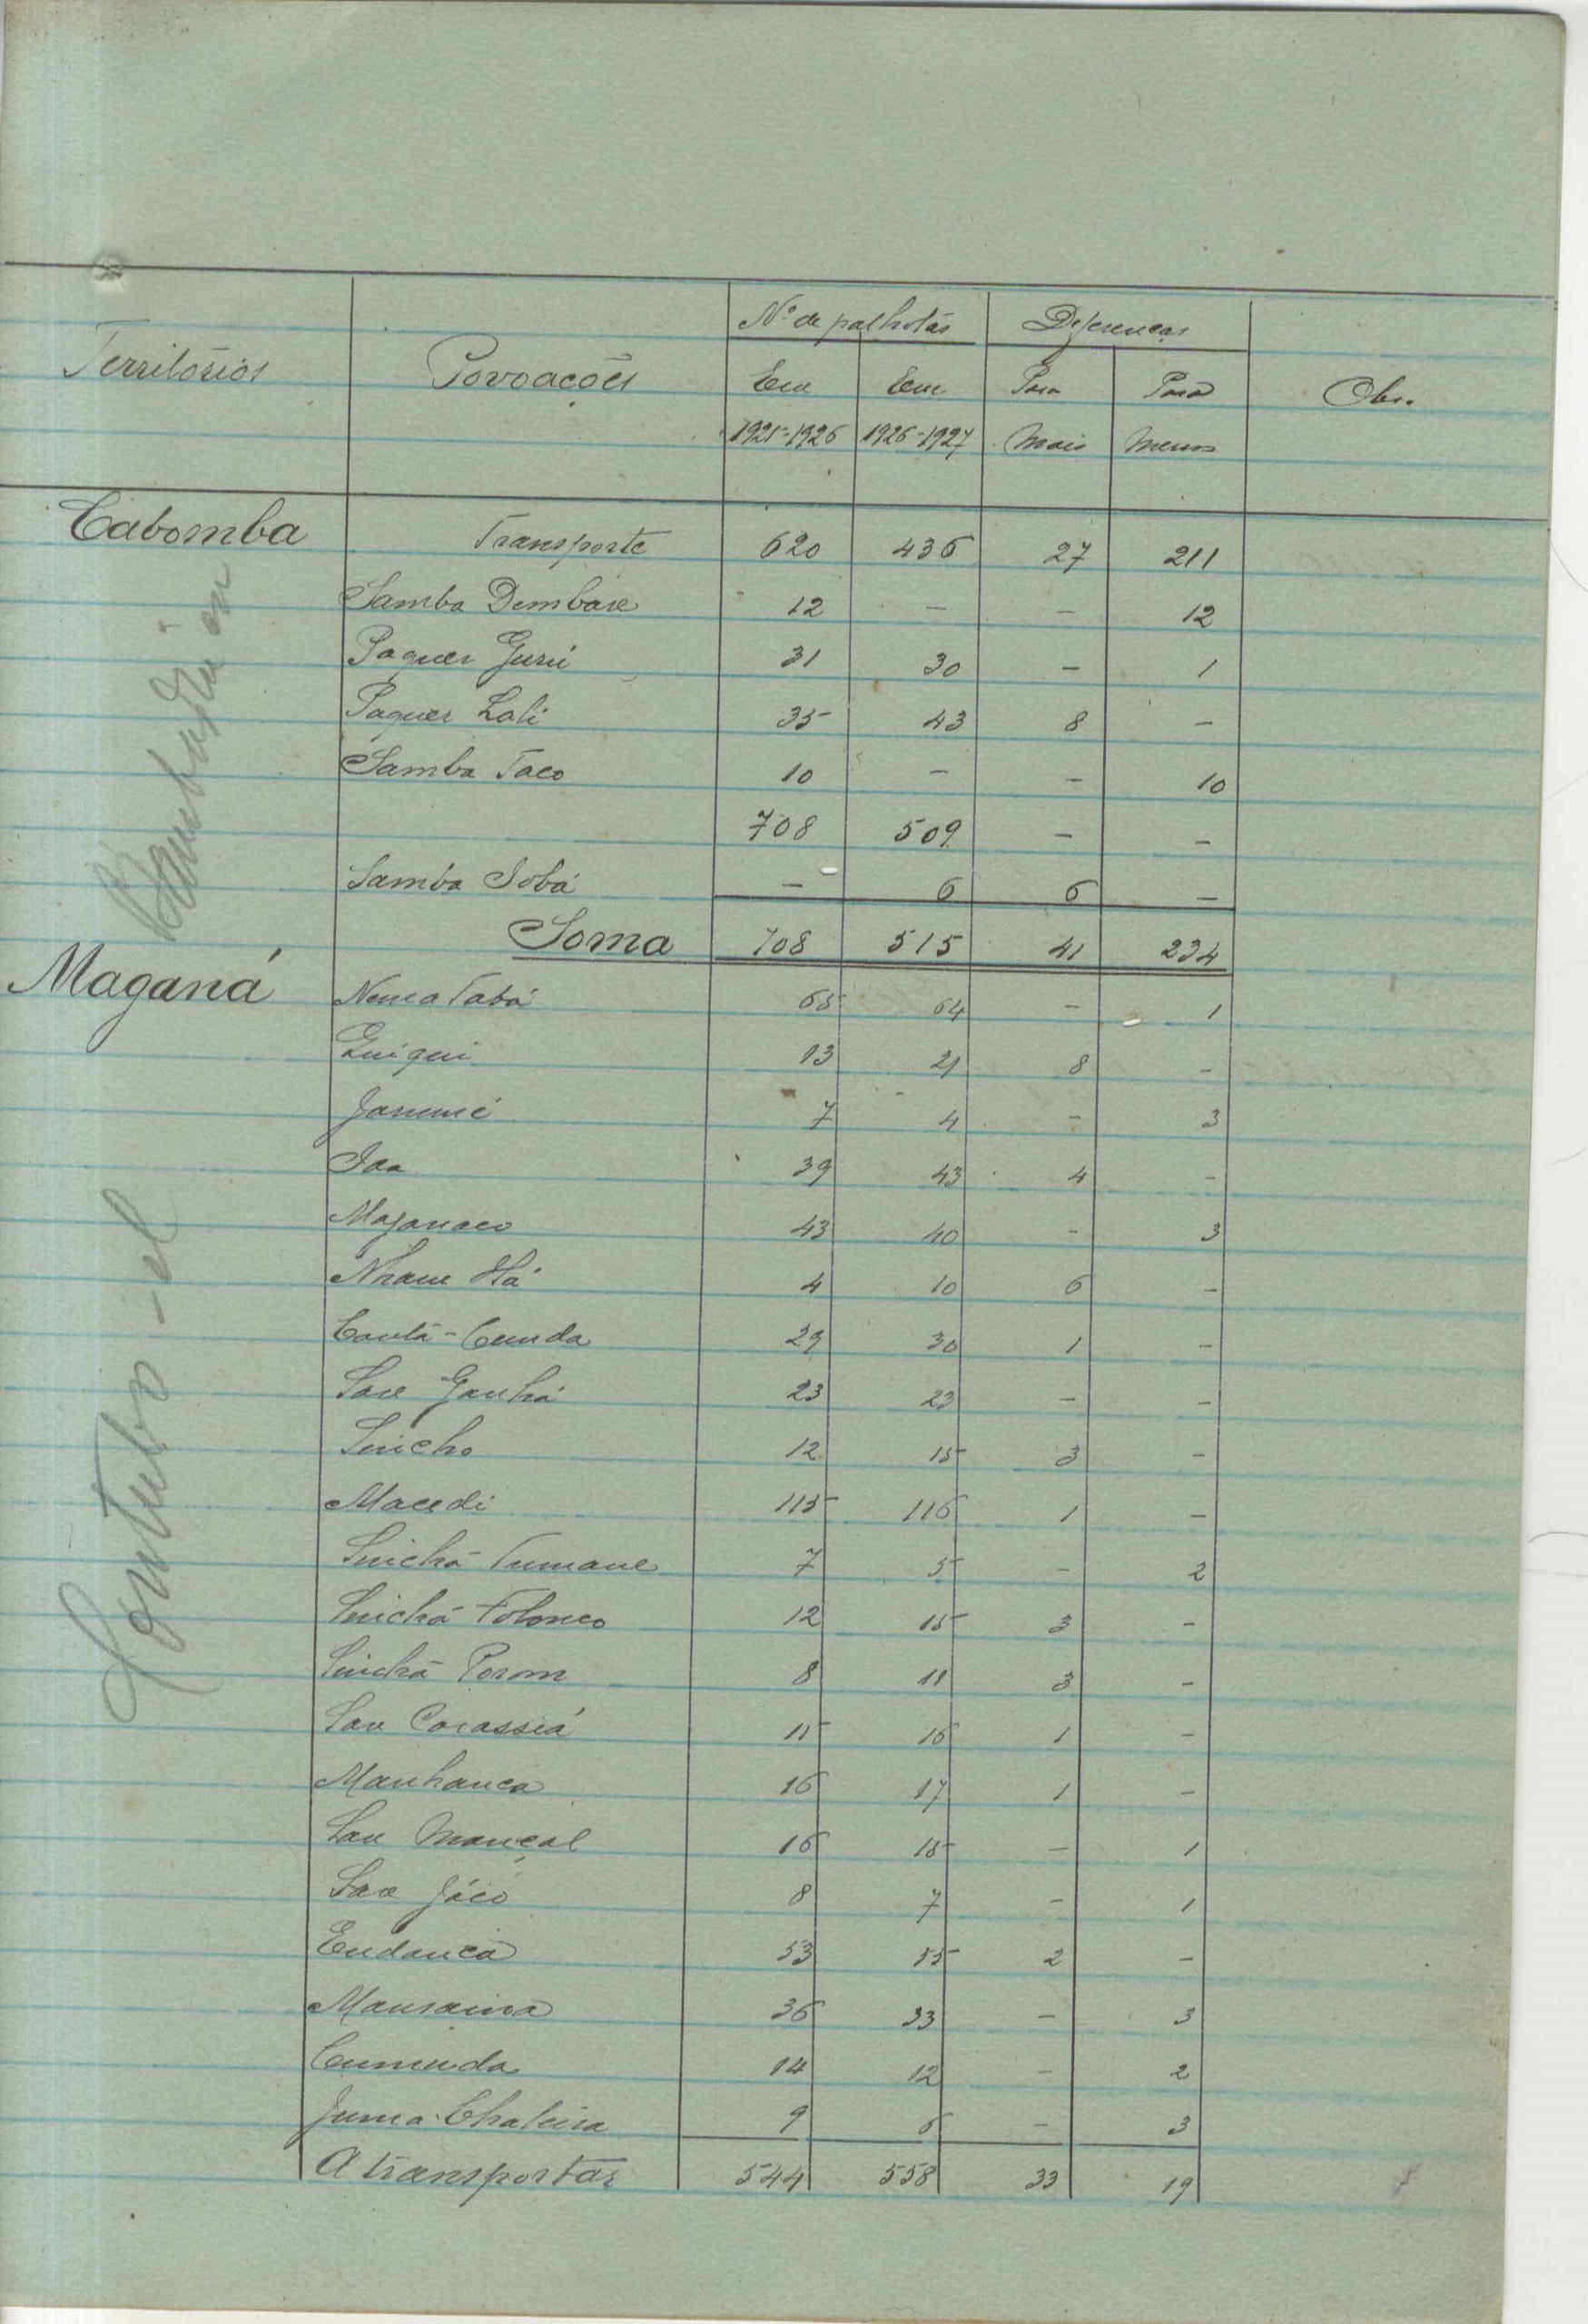 Nº de palhotas Diferenças
Territórios Povoações Em Em Para Para Obs.
1925-1926 1926-1927 Mais Menos
Cabomba Transporte 620 436 27 211
Samba Dembare 12 - - 12
Paquer Gurú 31 30 - 1
Paquer Lali 35 43 8 -
Samba Taco 10 - - 10
708 509 - -
Samba Sobá - 6 6 -
Soma 708 515 41 234
Maganá Nema Tabá 65 64 - 1
Quiqui 13 21 8 -
7 4 - 3
39 43 4 -
43 40 - 3
4 10 6 -
Cantá-Cunda 29 30 1 -
Sare Ganhá 23 23 - -
Sincho 12 15 3 -
Macedi 115 116 1 -
Sinchã Tumane 7 5 - 2
Sinchã Folonco 12 15 3 -
Sinchã Porom 8 11 3 -
Sare Corassiá 15 16 1 -
Manhanca 16 17 1 -
Sare Mançal 16 15 - 1
Sare Jócó 8 7 - 1
Endanca 53 55 2 -
36 33 - 3
14 12 - 2
Juma Chaleira 9 6 - 3
A transportar 544 558 33 19
Contubo-el